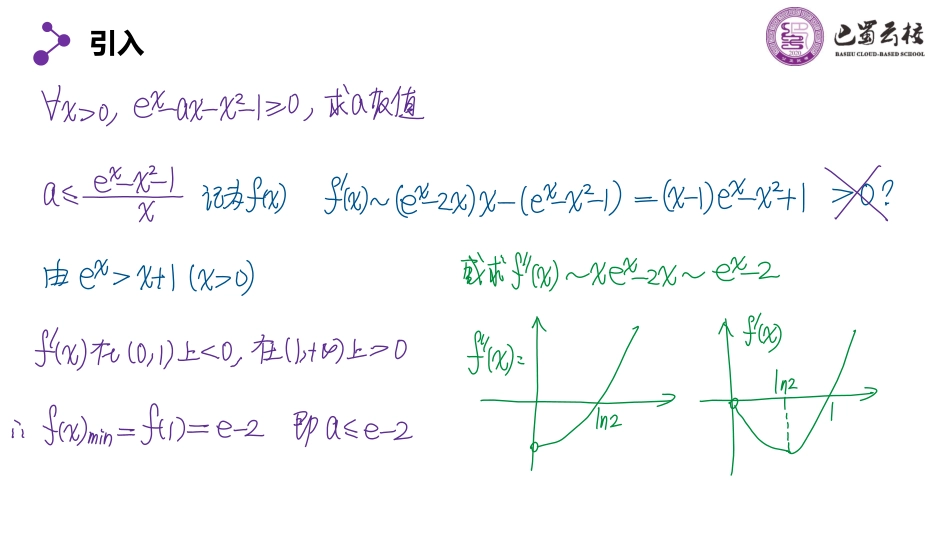 引入
巴蜀云校
BASHU CLOUD-BASED SCHOOL
∀x>0, eˣ-ax-x²-1≥0, 求a取值
a≤(eˣ-x²-1)/x 记为f(x) f'(x)~(eˣ-2x)x-(eˣ-x²-1)=(x-1)eˣ-x²+1 ≥0?
由 eˣ>x+1 (x>0)
或求f''(x)~xeˣ-2x~eˣ-2
f'(x)在(0,1)上<0, 在(1,+∞)上>0
f''(x)=
ln2
f'(x)
ln2
1
∴ f(x)min=f(1)=e-2 即a≤e-2